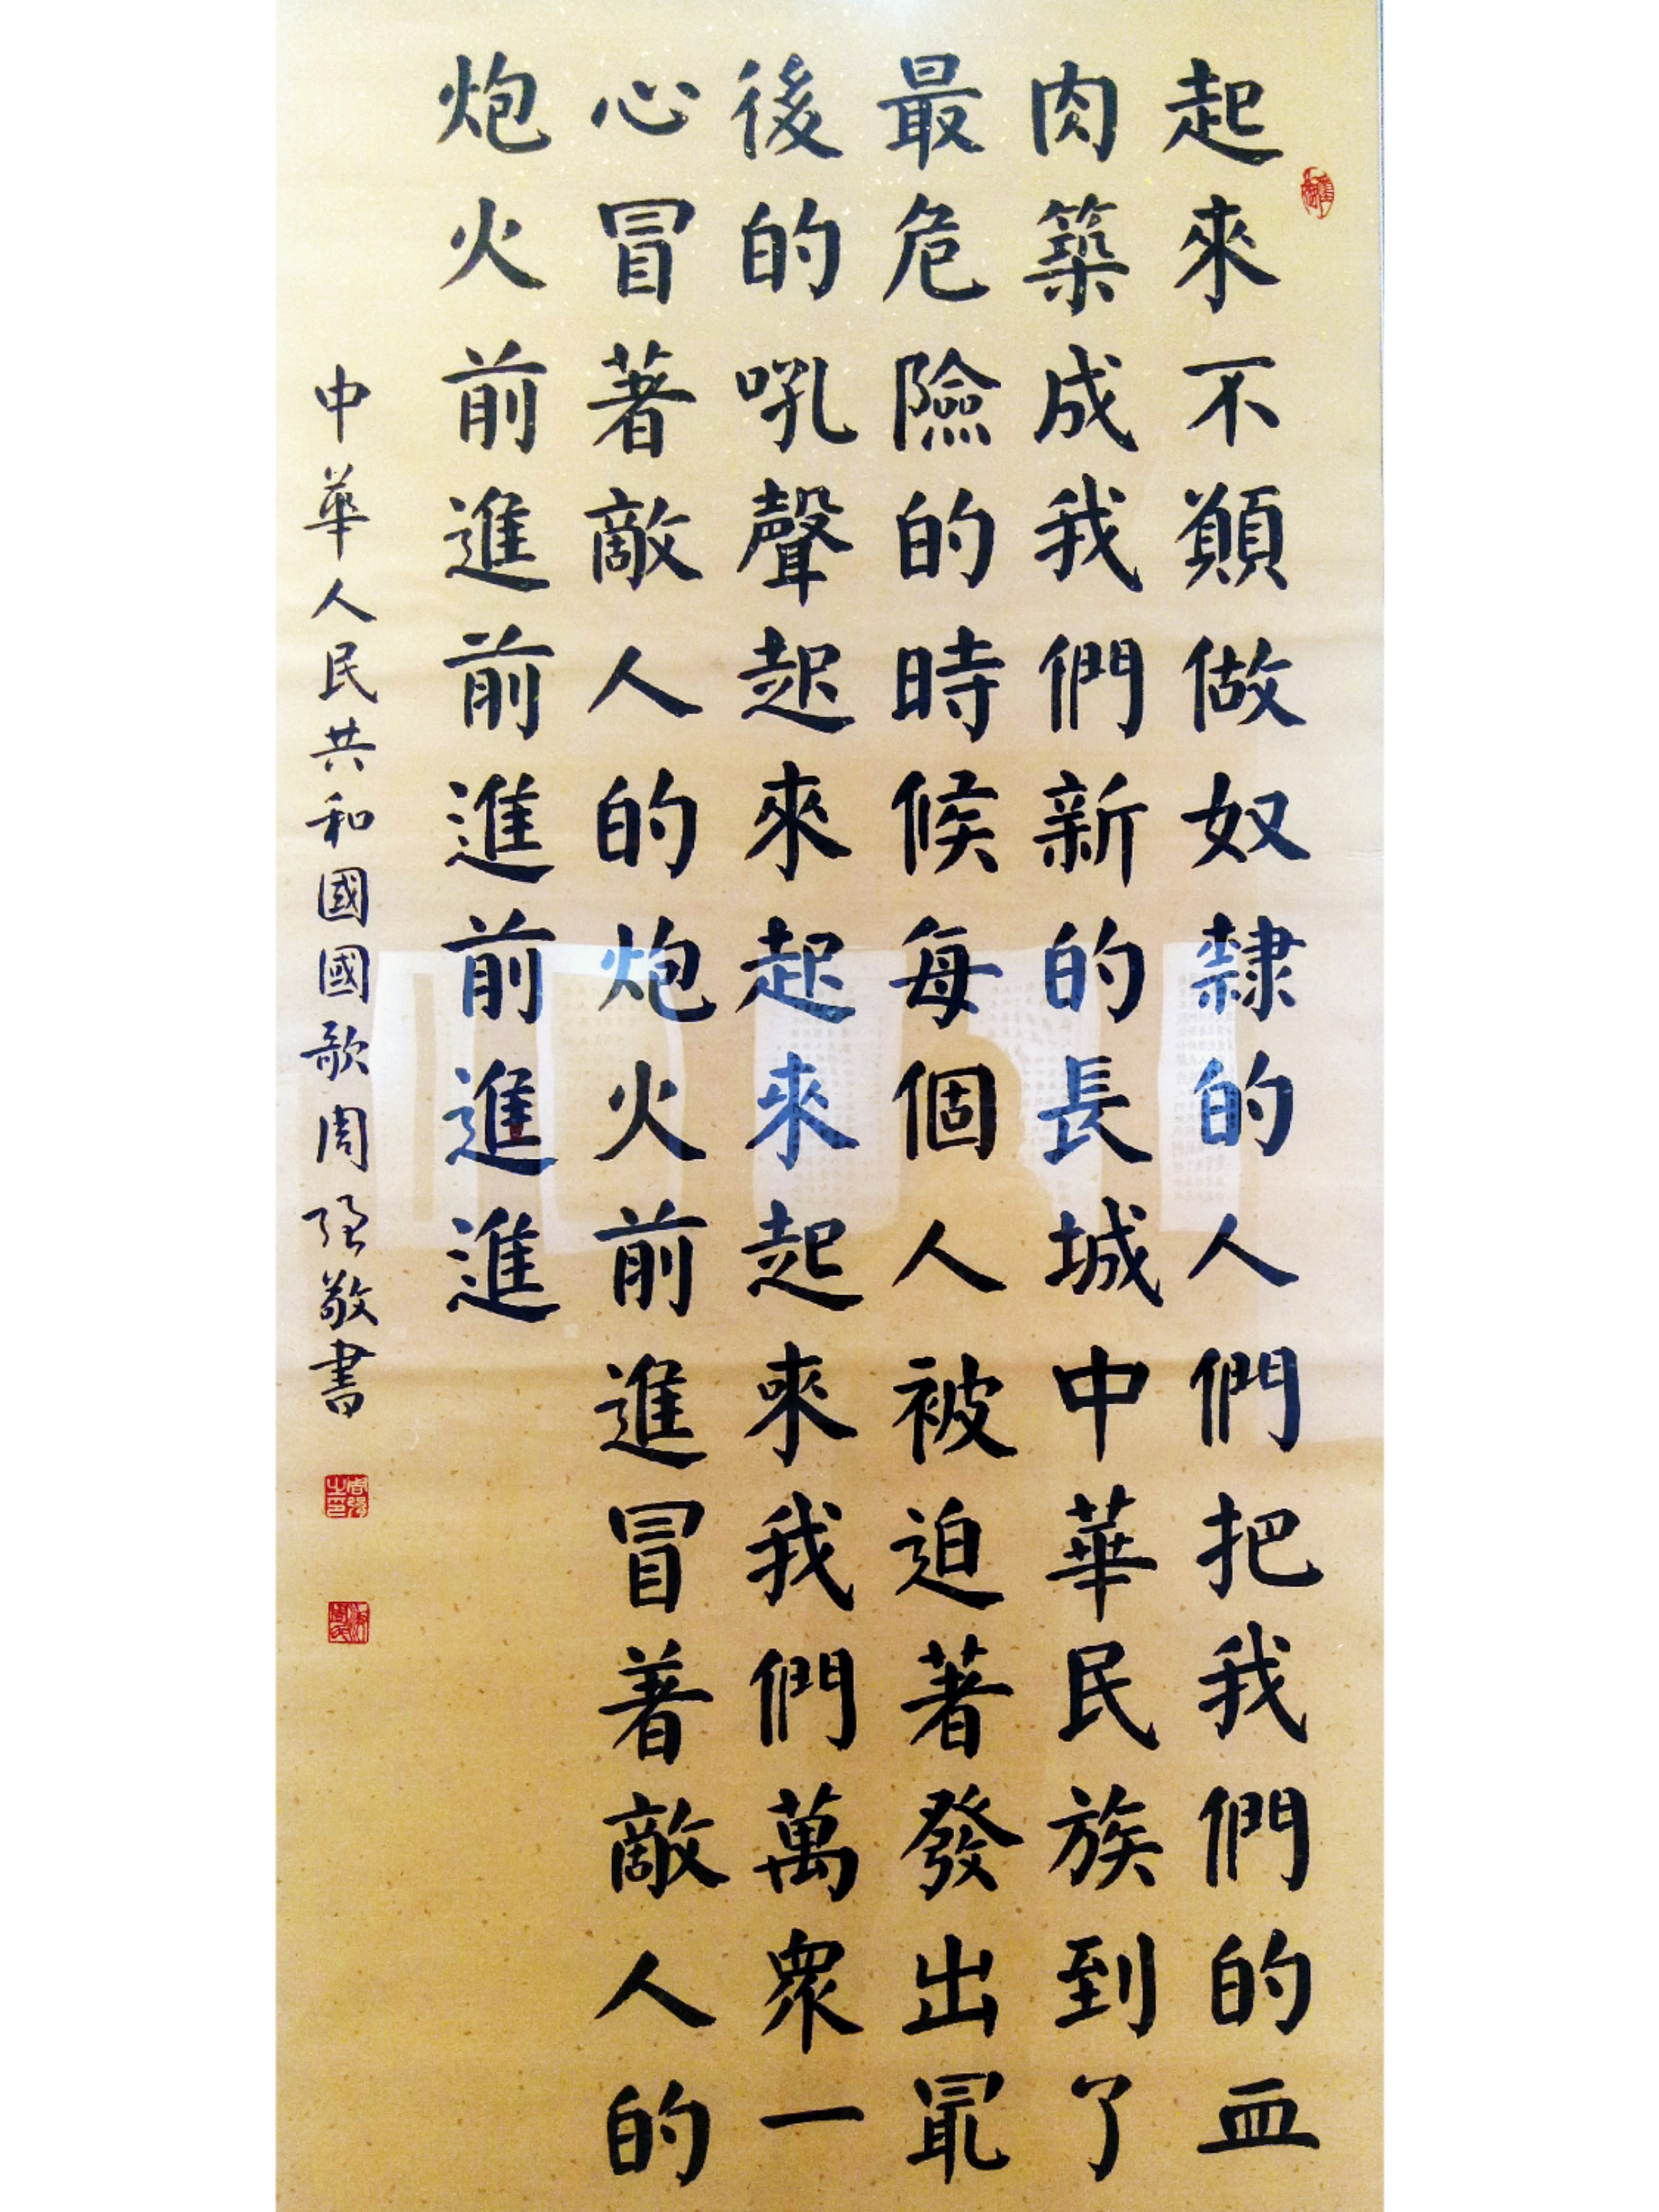 起來不願做奴隸的人們把我們的血
肉築成我們新的長城中華民族到了
最危險的時候每個人被迫著發出最
後的吼聲起來起來起來我們萬眾一
心冒著敵人的炮火前進冒着敵人的
炮火前進前進前進進
中華人民共和國國歌周強敬書
周強之印